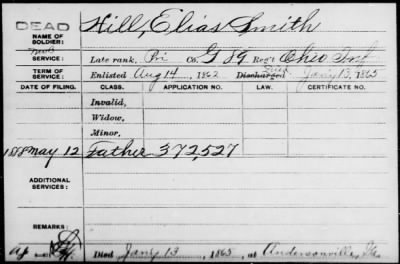 DEAD
NAME OF SOLDIER: Hill, Elias Smith
SERVICE: Late rank, Pri Co. G 89 Reg't Ohio Inf
TERM OF SERVICE: Enlisted Aug 14, 1862 Discharged Died Jany 13, 1865
DATE OF FILING. CLASS. APPLICATION NO. LAW. CERTIFICATE NO.
Invalid,
Widow,
Minor,
1888 May 12 Father 372,527
ADDITIONAL SERVICES:
REMARKS:
Died Jany 13, 1865, at Andersonville, Ga.